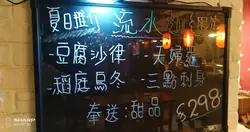 夏日 流水
-豆腐沙律 -天婦
-稻庭烏冬 -三點刺身
奉送:甜品
$298
SHARP